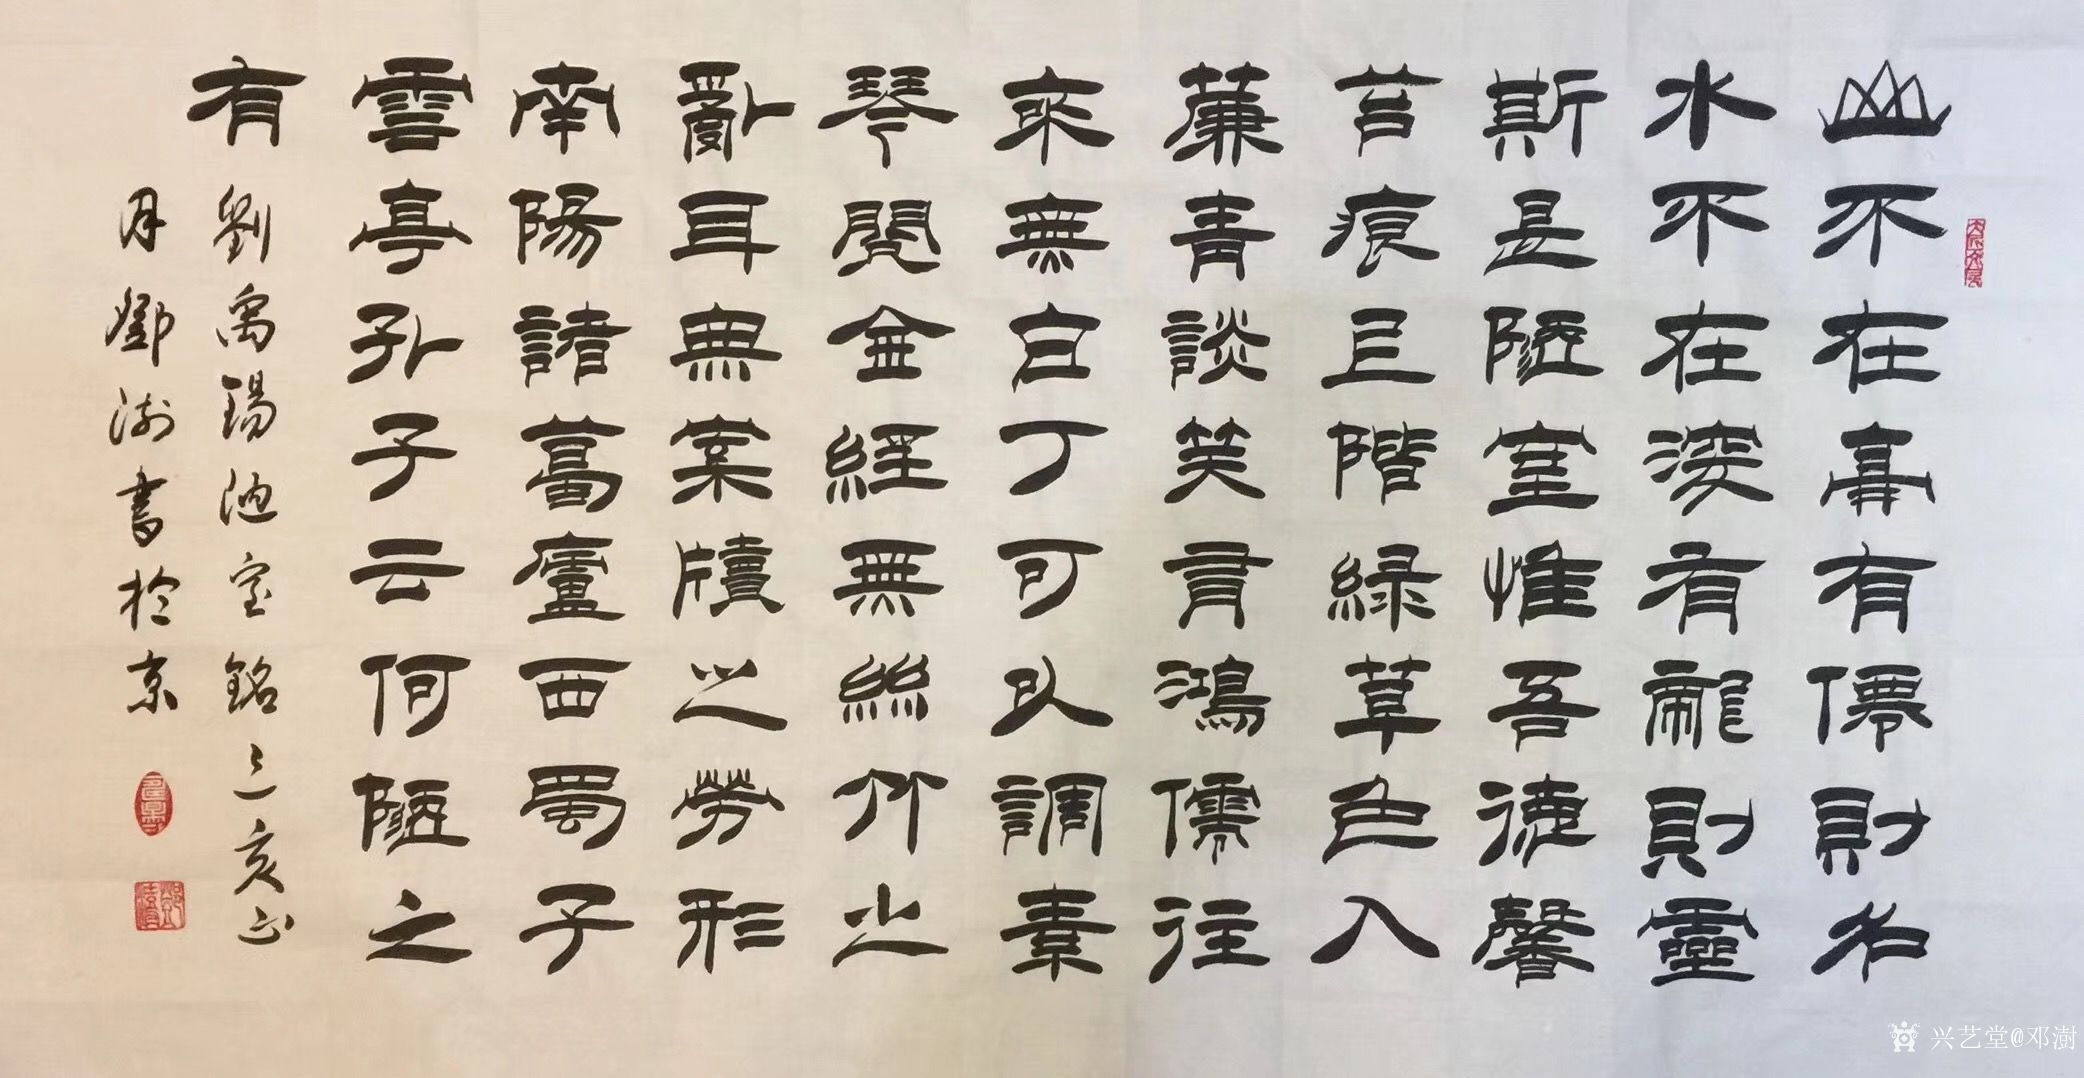 山不在高有僊則名
水不在深有龍則靈
斯是陋室惟吾德馨
苔痕上階綠草色入
簾青談笑有鴻儒往
來無白丁可以調素
琴閱金經無絲竹之
亂耳無案牘之勞形
南陽諸葛廬西蜀子
雲亭孔子云何陋之
有 劉禹錫陋室銘己亥正
月鄧澍書於京
兴艺堂@邓澍